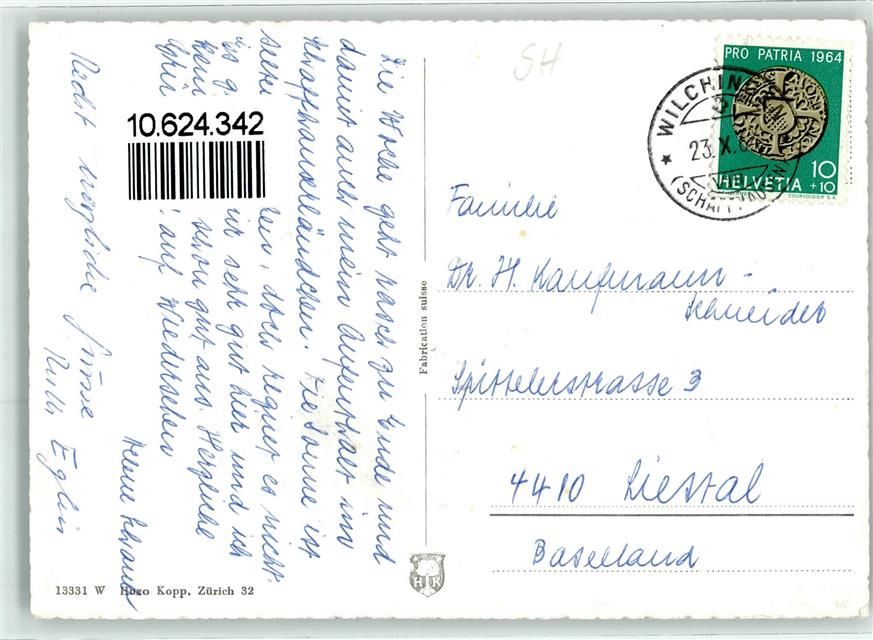 SH
PRO PATRIA 1964
10
+10
HELVETIA
COURVOISIER S.A.
WILCHIN
23.X.6
(SCHAFFHAUSEN)
10.624.342
Die Woche geht rasch zu Ende und
damit auch mein Aufenthalt im
Schaffhauserländchen. Die Sonne ist
doch regnet es nicht.
sehr gut hier und ich
schon gut aus. Herzliche
auf Wiedersehen
Helene
Recht
Grüsse
Ruth Eglin
Familie
Dr. H. Kaufmann-
Schneider
Spittelerstrasse 3
4410 Liestal
Baselland
Fabrication suisse
HK
13331 W Hugo Kopp, Zürich 32